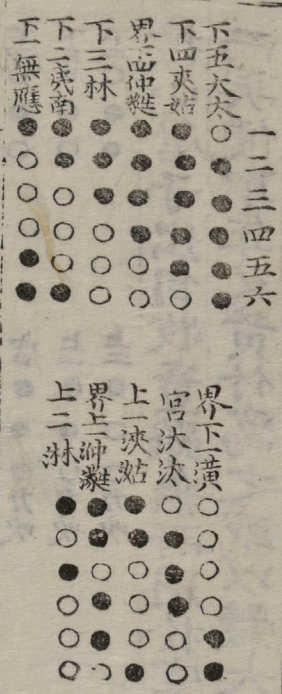 一二三四五六
下五大太
下四夾姑
界下四仲蕤
下三林
下二夷南
下一無應
界下一潢
宮汏汰
上一浹㴌
界上一㳞㶋
上二淋